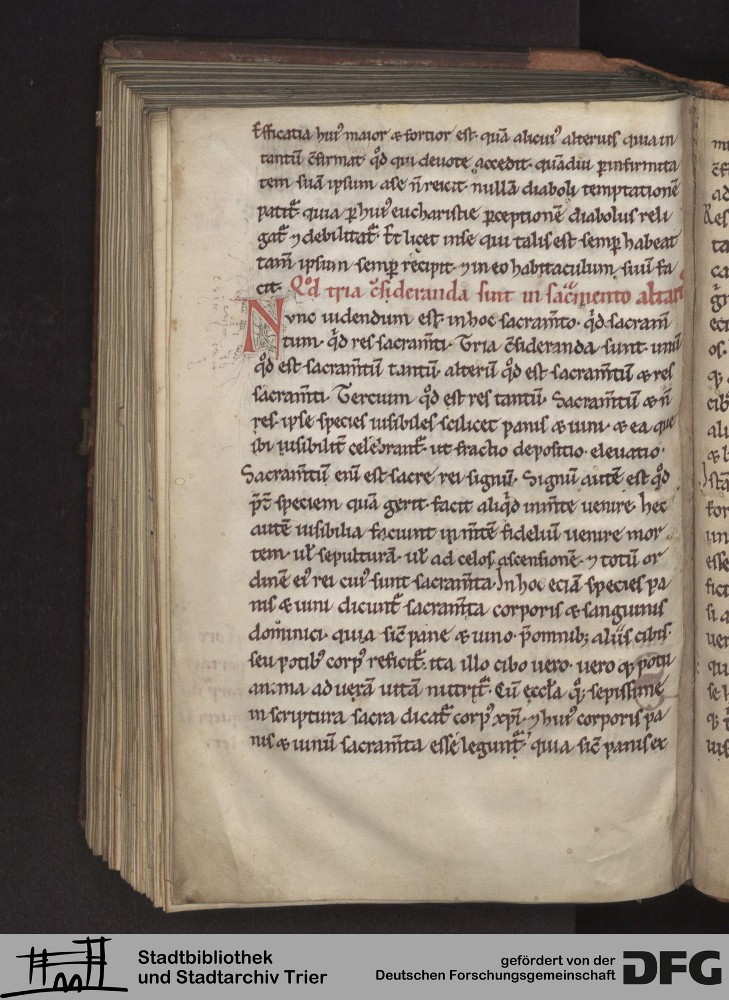 Efficatia hui᷒ maior ⁊ fortior est quā alicui᷒ alterius quia in
tantū c̄firmat qd̄ qui deuote accedit quādiu p̱ infirmita
tem suā ipsum a se n̄ reicit nullā diaboli temptationē
patit᷑ quia p̱ hui᷒ eucharistie p̱ceptionē diabolus reli
gat᷑ ⁊ debilitat᷑. Et licet in se qui talis est semp̱ habeat
tam̄ ipsum semp̱ recipit ⁊ in eo habitaculum suū fa
cit. Qd̄ tria c̄sideranda sunt in sac̄mento altaris
Nvnc uidendum est in hoc sacram̄to. qd̄ sacram̄
tum. qd̄ res sacram̄ti. Tria c̄sideranda sunt. unū
qd̄ est sacram̄tū tantū. alterū qd̄ est sacram̄tū ⁊ res
sacram̄ti. Tercium qd̄ est res tantū. Sacram̄tū ⁊ n̄
res. ipse species uisibiles scilicet panis ⁊ uini. ⁊ ea que
ibi uisibilit̄ celebrant᷑. ut fractio depositio. eleuatio.
Sacram̄tū eni est sacre rei signū. Signū autē est qd̄
p̄t̄ speciem quā gerit. facit aliqd̄ in m̄te uenire. hec
autē uisibilia faciunt in m̄tē fideliū uenire mor
tem. ul̄ sepulturā. ul̄ ad celos ascensionē. ⁊ totū or
dinē ei᷒ rei cui᷒ sunt sacram̄ta. In hoc eciā species pa
nis ⁊ uini dicunt᷑ sacram̄ta corporis ⁊ sanguinis
dominici. quia sic̄ pane ⁊ uino. p̄ omnib; aliis cibis.
seu potib᷒ corp᷒ reficit᷑. ita illo cibo uero. uero q; potu
anima ad uerā uitā nutrit᷑. Cū eccl̄a q; sepissime
in scriptura sacra dicat᷑ corp᷒ xp̄i. ⁊ hui᷒ corporis pa
nis ⁊ uinū sacram̄ta esse legunt᷑. quia sic̄ panis ex
Stadtbibliothek
und Stadtarchiv Trier
gefördert von der
Deutschen Forschungsgemeinschaft
DFG